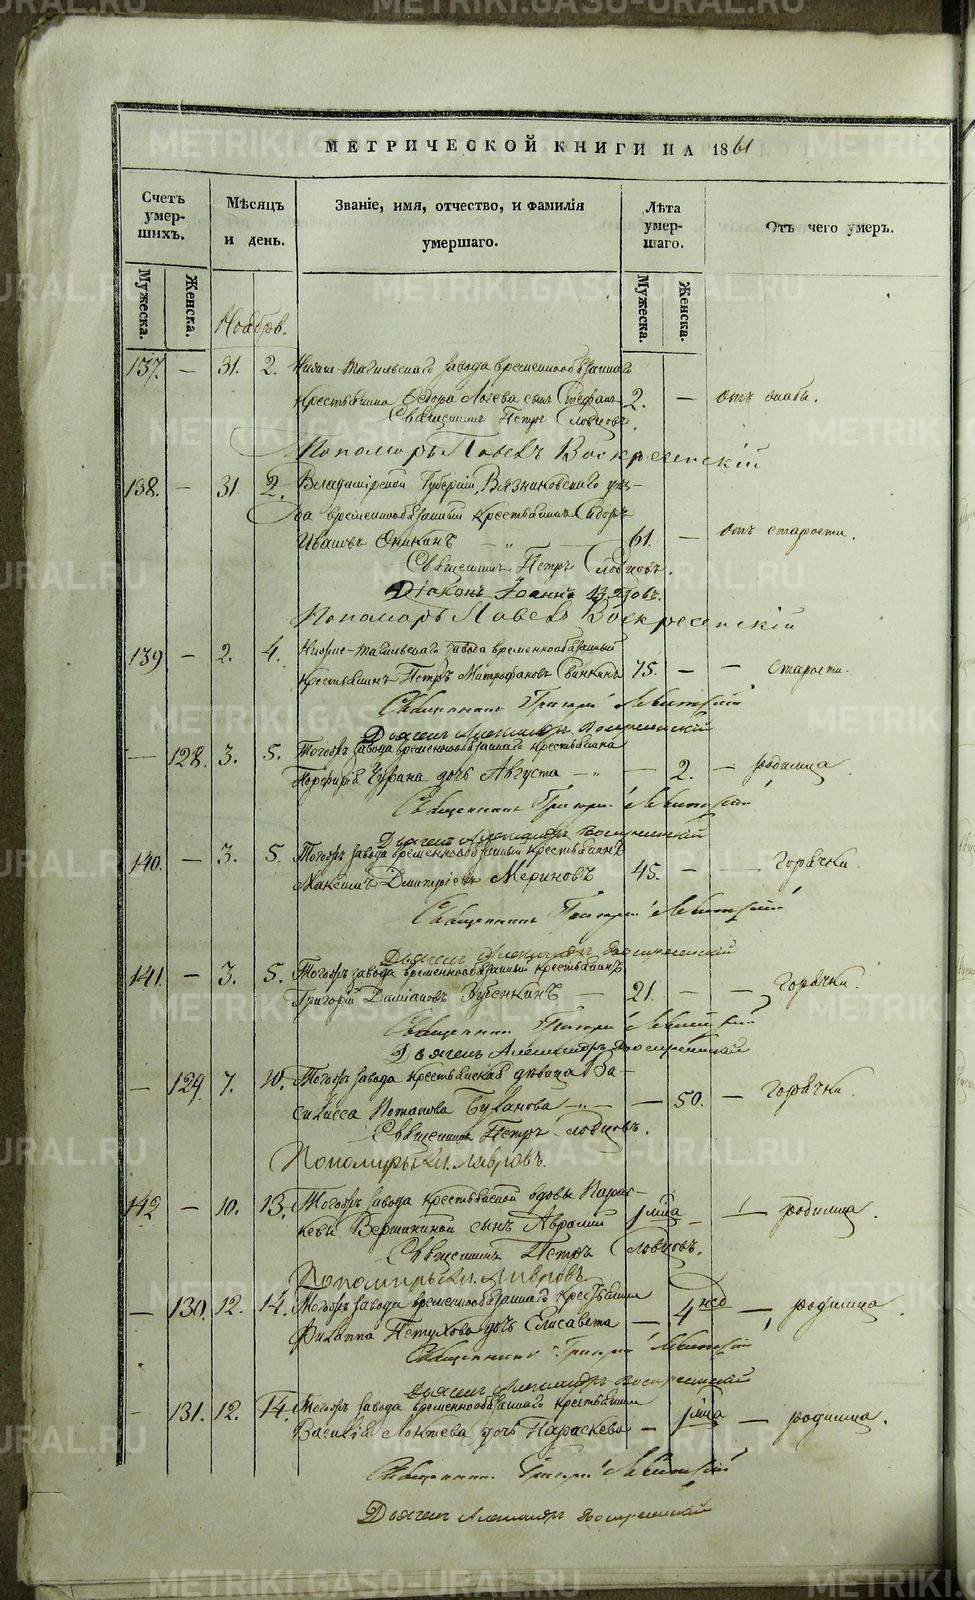 МЕТРИЧЕСКОЙ КНИГИ НА 1861
Счетъ умер-шихъ.
Мѣсяцъ и день.
Званіе, имя, отчество, и фамилія умершаго.
Лѣта умер-шаго.
Отъ чего умеръ.
Мужеска.
Женска.
Мужеска.
Женска.
Ноабрь.
137. — 31. 2. Нижне-Тагильскаго завода временнообязаннаго
крестьянина Ѳедора Логева сынъ Стефанъ 2. — отъ слабы.
Священникъ Петръ Словцовъ.
Пономарь Павелъ Воскресенскій
138. — 31 2. Владимірской Губерніи, Вязниковскаго уѣз-
да временнообязанный крестьянинъ Сидоръ
Ивановъ Оникинъ — „ — 61. — отъ старости.
Священникъ Петръ Словцовъ.
Діаконъ Іоаннъ
Пономарь Павелъ Воскресенскій
139 — 2. 4. Нижне-Тагильскаго завода временнообязанный
крестьянинъ Петръ Митрофановъ Свинкинъ 75. — — старости.
Священникъ Григорій Левитскій
Дьячекъ Александръ Воскресенскій
— 128. 3. 5. Тогожъ завода временнообязаннаго крестьянина
Порфирія Чурина дочь Августа — „ — 2. — родимца.
Священникъ Григорій Левитскій
Дьячекъ Александръ Воскресенскій
140. — 3. 5. Тогожъ завода временнообязанный крестьянинъ
Максимъ Димитріевъ Мериновъ 45. — — горячки.
Священникъ Григорій Левитскій
Дьячекъ Александръ Воскресенскій
141. — 3. 5. Тогожъ завода временнообязанный крестьянинъ
Григорій Даміановъ Зубенкинъ — 21. — — горячки.
Священникъ Григорій Левитскій
Дьячекъ Александръ Воскресенскій
— 129. 7. 10. Тогожъ завода крестьянская дѣвица Ва-
силисса Потапова Буланова — „ — — 50. — горячки.
Священникъ Петръ Словцовъ.
Пономарь Лавровъ.
142 — 10. 13. Тогожъ завода крестьянской вдовы Парас-
кевы Вершининой сынъ Авраамій 1 мца — — родимца.
Священникъ Петръ Словцовъ.
Пономарь Лавровъ
— 130. 12. 14. Тогожъ завода временнообязаннаго крестьянина
Филиппа Петухова дочь Елисавета — 4 нед — родимца.
Священникъ Григорій Левитскій
Дьячекъ Александръ Воскресенскій
— 131. 12. 14. Тогожъ завода временнообязаннаго крестьянина
Василія Локтева дочь Параскева — 1 мца — родимца.
Священникъ Григорій Левитскій
Дьячекъ Александръ Воскресенскій
METRIKI.GASO-URAL.RU